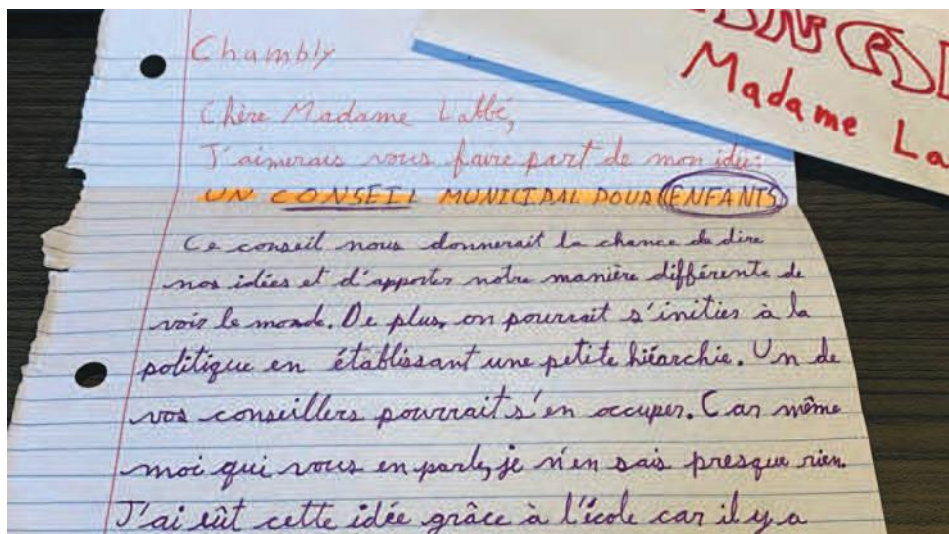 Chambly
Madame La
Chère Madame Labbé,
J'aimerais vous faire part de mon idée:
UN CONSEIL MUNICIPAL POUR ENFANTS
Ce conseil nous donnerait la chance de dire
nos idées et d'apporter notre manière différente de
voir le monde. De plus, on pourrait s'initier à la
politique en établissant une petite hiéarchie. Un de
vos conseillers pourrait s'en occuper. Car même
moi qui vous en parle, je n'en sais presque rien.
J'ai eût cette idée grâce à l'école car il y a